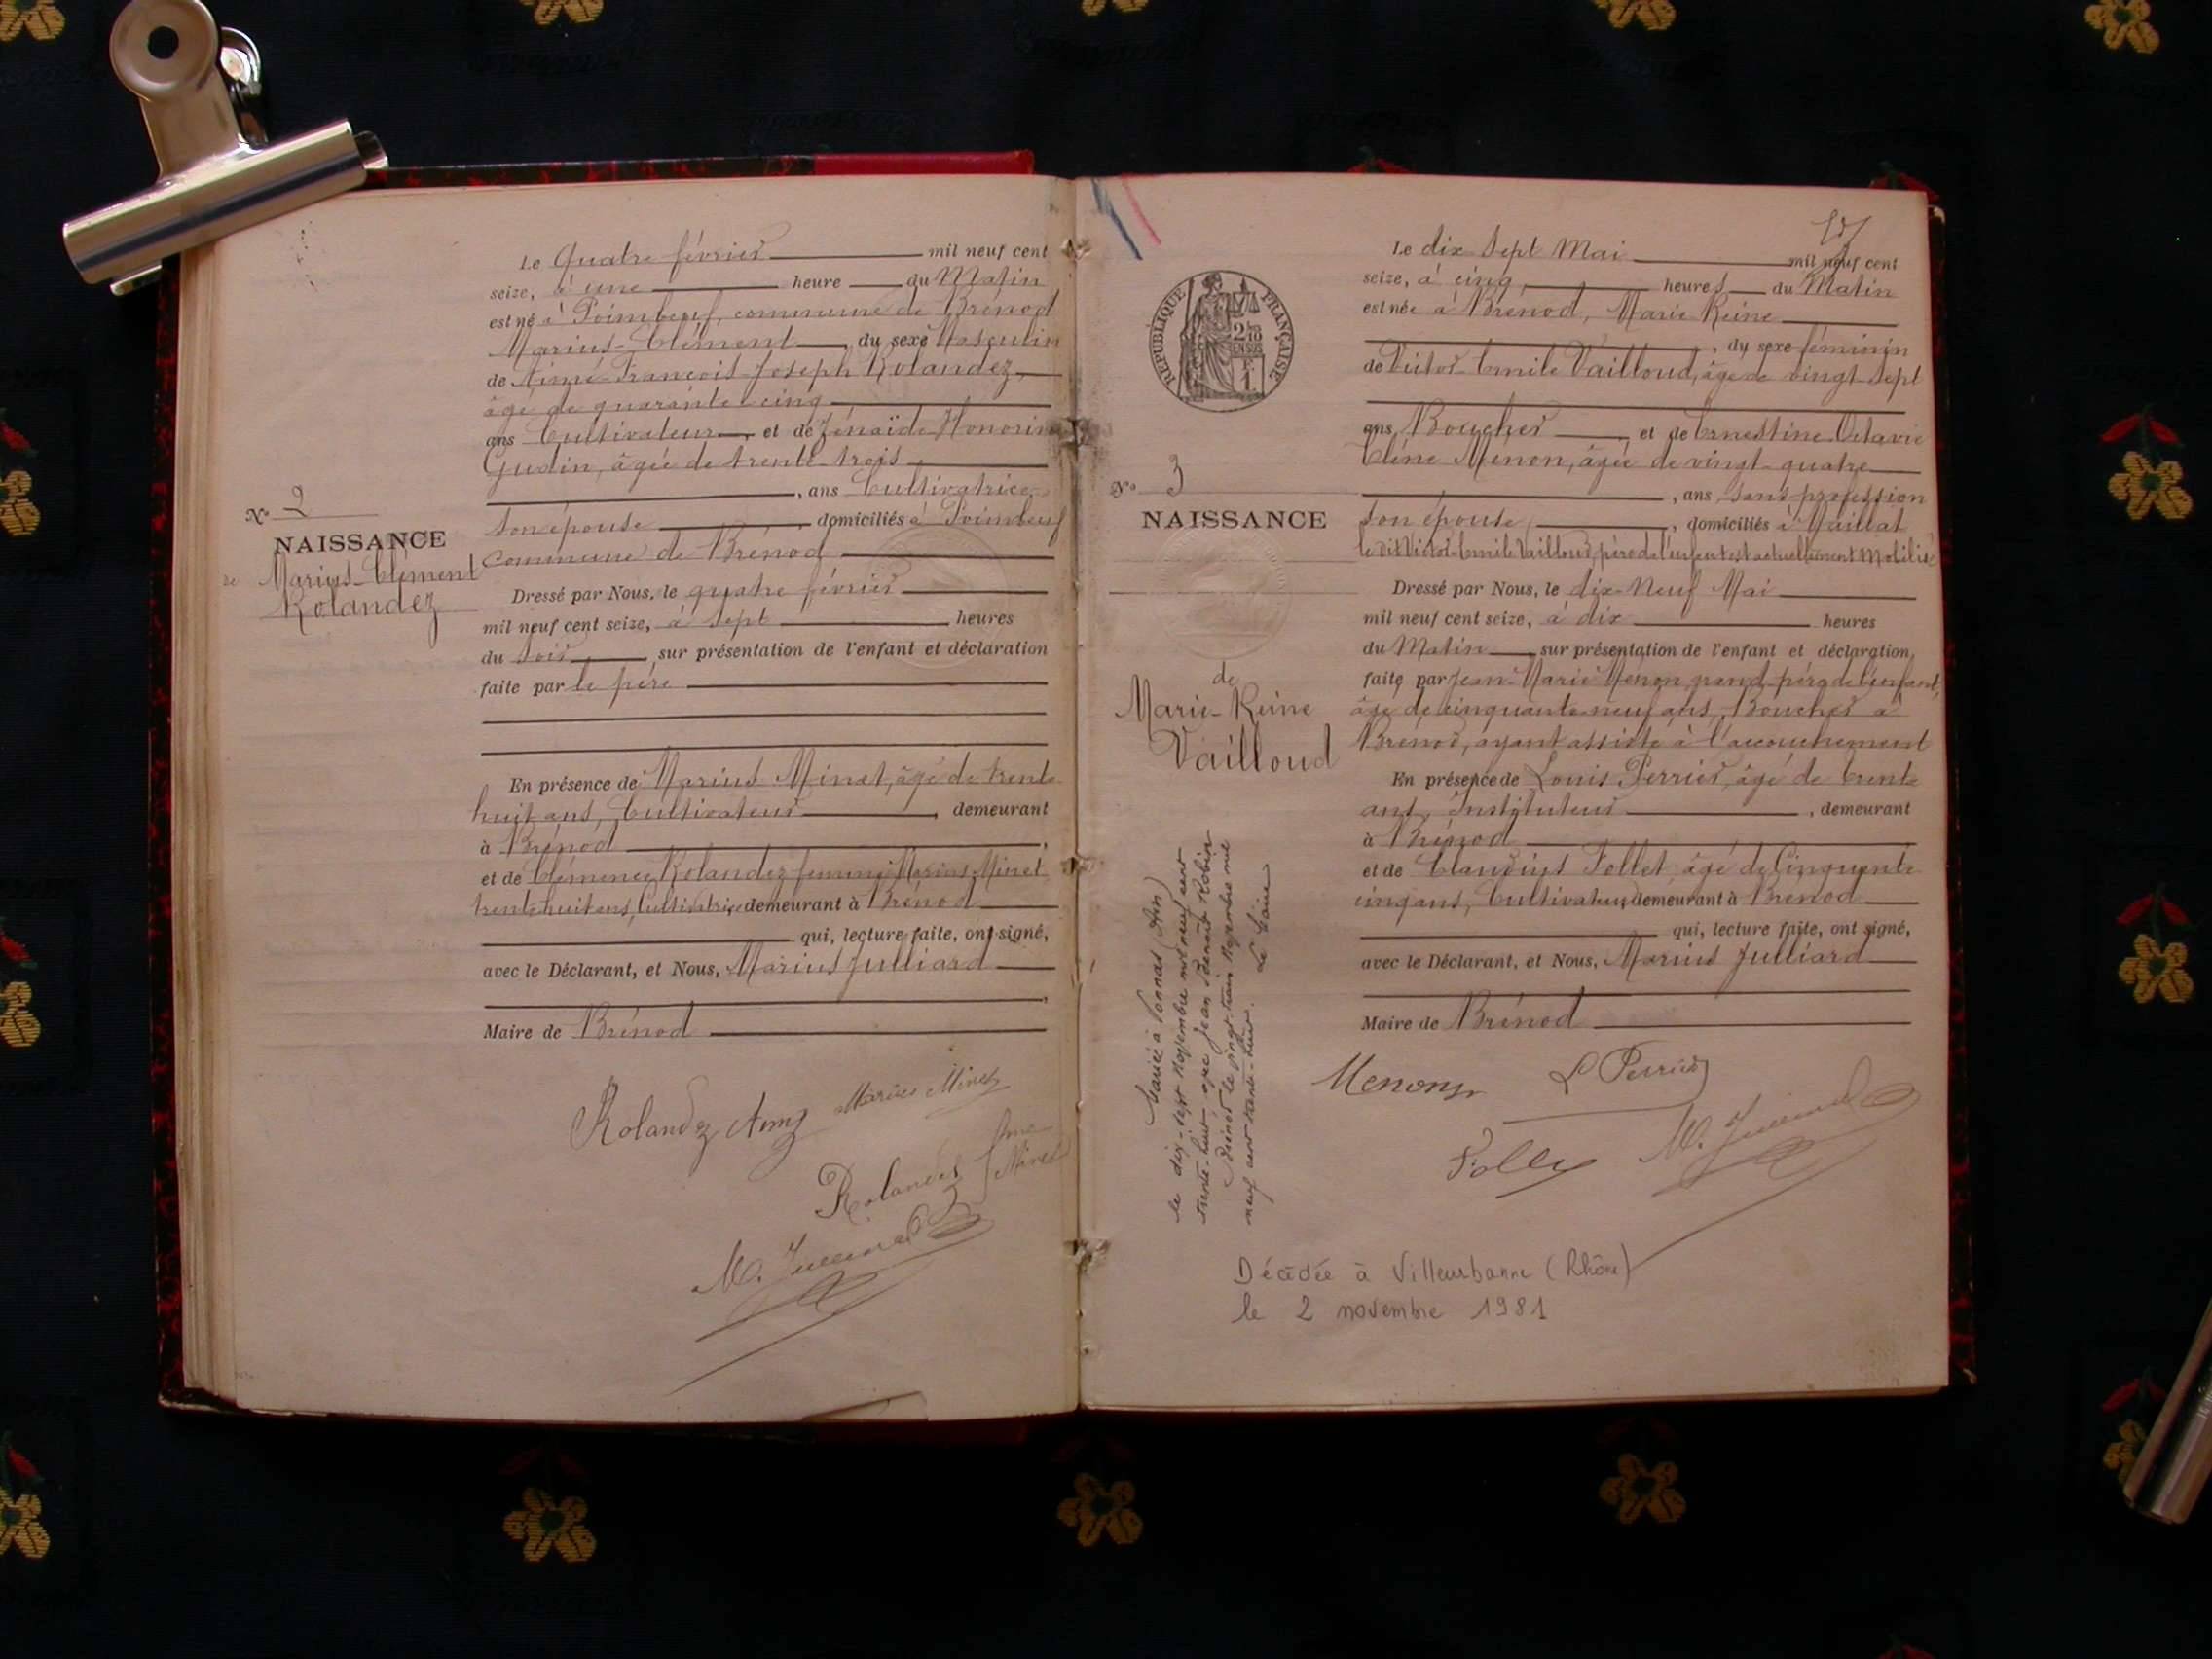 Le Quatre février mil neuf cent
seize, à une heure du Matin
est né à Poimbeuf, commune de Brénod
Marius-Clément, du sexe Masculin
de Aimé-François-Joseph Rolandez,
âgé de quarante cinq
ans Cultivateur, et de Zénaïde-Honorine
Gudin, âgée de trente-trois
, ans Cultivatrice
Son épouse, domiciliés à Poimbeuf
commune de Brénod
Nº 2
NAISSANCE
de Marius-Clément
Rolandez
Dressé par Nous, le quatre février
mil neuf cent seize, à sept heures
du Soir, sur présentation de l'enfant et déclaration
faite par le père
En présence de Marius Minet, âgé de trente
huit ans, Cultivateur, demeurant
à Brénod,
et de Clémence Rolandez femme Marius Minet
trente huit ans, Cultivatrice demeurant à Brénod
qui, lecture faite, ont signé,
avec le Déclarant, et Nous, Marius Julliard
,
Maire de Brénod
Rolandez Aimé Marius Minet
Rolandez fme Minet
M. Julliard
Le dix-Sept Mai mil neuf cent
seize, à cinq heures du Matin
est née à Brénod, Marie-Reine
, du sexe féminin
de Victor-Emile Vailloud, âgé de vingt-Sept
ans, Boucher, et de Ernestine-Octavie
Cléne Menon, âgée de vingt-quatre
, ans, Sans profession
Son épouse, domiciliés à Maillat
le dit Victor-Emile Vailloud, père de l'enfant est actuellement Mobilisé
RÉPUBLIQUE FRANÇAISE
Nº 3
NAISSANCE
de
Marie-Reine
Vailloud
Dressé par Nous, le dix-Neuf Mai
mil neuf cent seize, à dix heures
du Matin sur présentation de l'enfant et déclaration,
faite par Jean-Marie Menon, grand-père de l'enfant,
âgé de cinquante neuf ans, Boucher à
Brénod, ayant assisté à l'accouchement
En présence de Louis Perrier, âgé de trente
ans, Instituteur, demeurant
à Brénod
et de Claudius Follet âgé de Cinquante
cinq ans, Cultivateur demeurant à Brénod
qui, lecture faite, ont signé,
avec le Déclarant, et Nous, Marius Julliard
Maire de Brénod
Mariée à Sonnas (Ain)
le dix-sept Novembre mil neuf cent
trente-huit avec Jean Benoit Robin
Brénod le vingt-trois Novembre mil
neuf cent trente-huit. Le Maire
Menon L Perrier
Follet M. Julliard
Décédée à Villeurbanne (Rhône)
le 2 novembre 1981